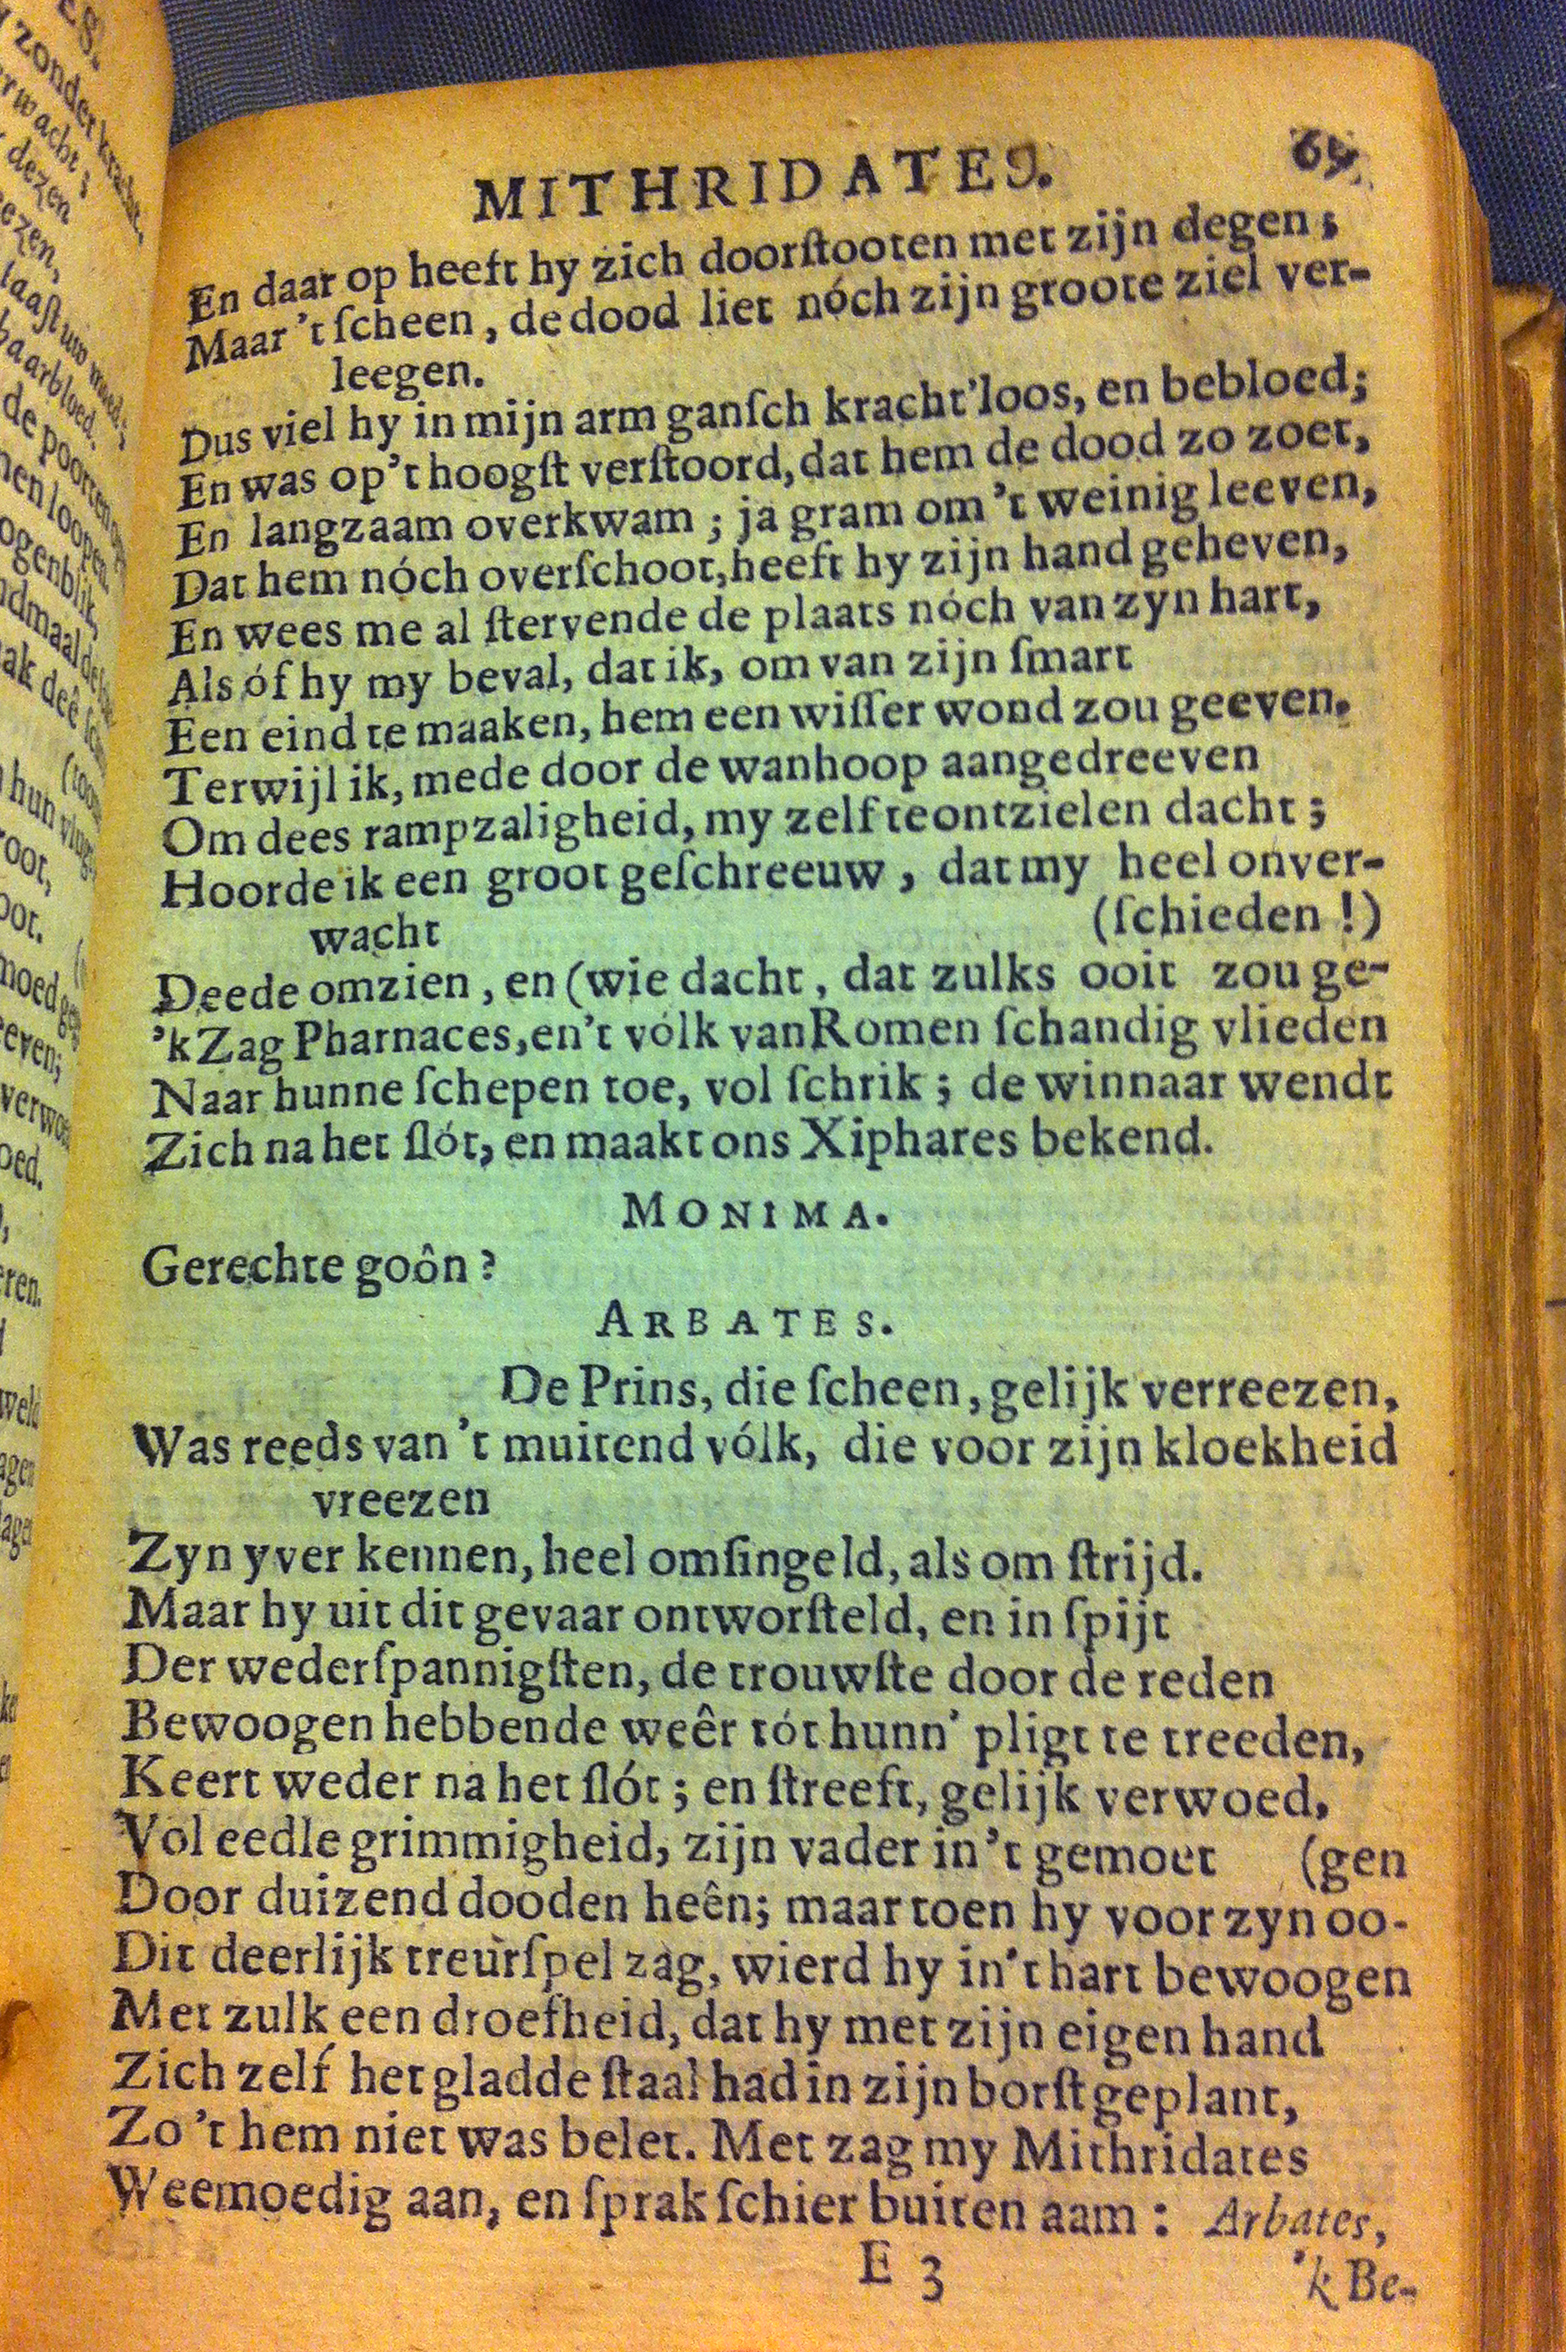 MITHRIDATES. 69
En daar op heeft hy zich doorſtooten met zijn degen;
Maar 't ſcheen, de dood liet nóch zijn groote ziel ver-
leegen.
Dus viel hy in mijn arm ganſch kracht'loos, en bebloed;
En was op't hoogſt verſtoord, dat hem de dood zo zoet,
En langzaam overkwam; ja gram om 't weinig leeven,
Dat hem nóch overſchoot, heeft hy zijn hand geheven,
En wees me al ſtervende de plaats nóch van zyn hart,
Als óf hy my beval, dat ik, om van zijn ſmart
Een eind te maaken, hem een wiſſer wond zou geeven.
Terwijl ik, mede door de wanhoop aangedreeven
Om dees rampzaligheid, my zelf te ontzielen dacht;
Hoorde ik een groot geſchreeuw, dat my heel onver-
wacht (ſchieden!)
Deede omzien, en (wie dacht, dat zulks ooit zou ge-
'k Zag Pharnaces, en't vólk van Romen ſchandig vlieden
Naar hunne ſchepen toe, vol ſchrik; de winnaar wendt
Zich na het ſlót, en maakt ons Xiphares bekend.
MONIMA.
Gerechte goôn?
ARBATES.
De Prins, die ſcheen, gelijk verreezen,
Was reeds van 't muitend vólk, die voor zijn kloekheid
vreezen
Zyn yver kennen, heel omſingeld, als om ſtrijd.
Maar hy uit dit gevaar ontworſteld, en in ſpijt
Der wederſpannigſten, de trouwſte door de reden
Bewoogen hebbende weêr tót hunn' pligt te treeden,
Keert weder na het ſlót; en ſtreeft, gelijk verwoed,
Vol eedle grimmigheid, zijn vader in 't gemoet (gen
Door duizend dooden heên; maar toen hy voor zyn oo-
Dit deerlijk treurſpel zag, wierd hy in't hart bewoogen
Met zulk een droefheid, dat hy met zijn eigen hand
Zich zelf het gladde ſtaal had in zijn borſt geplant,
Zo 't hem niet was belet. Met zag my Mithridates
Weemoedig aan, en ſprak ſchier buiten aam: Arbates,
E 3 'k Be-